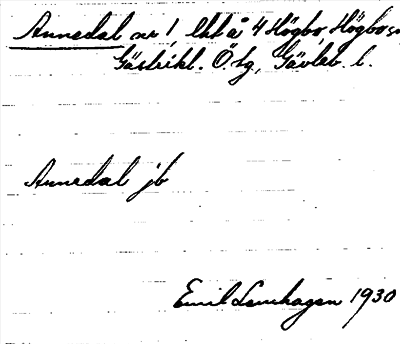 Annedal nr 1, lht å 4 Högbo, Högbo sn
Gästrikl. Ö. tg, Gävleb. l.
Annedal jb
Emil Lennhagen 1930